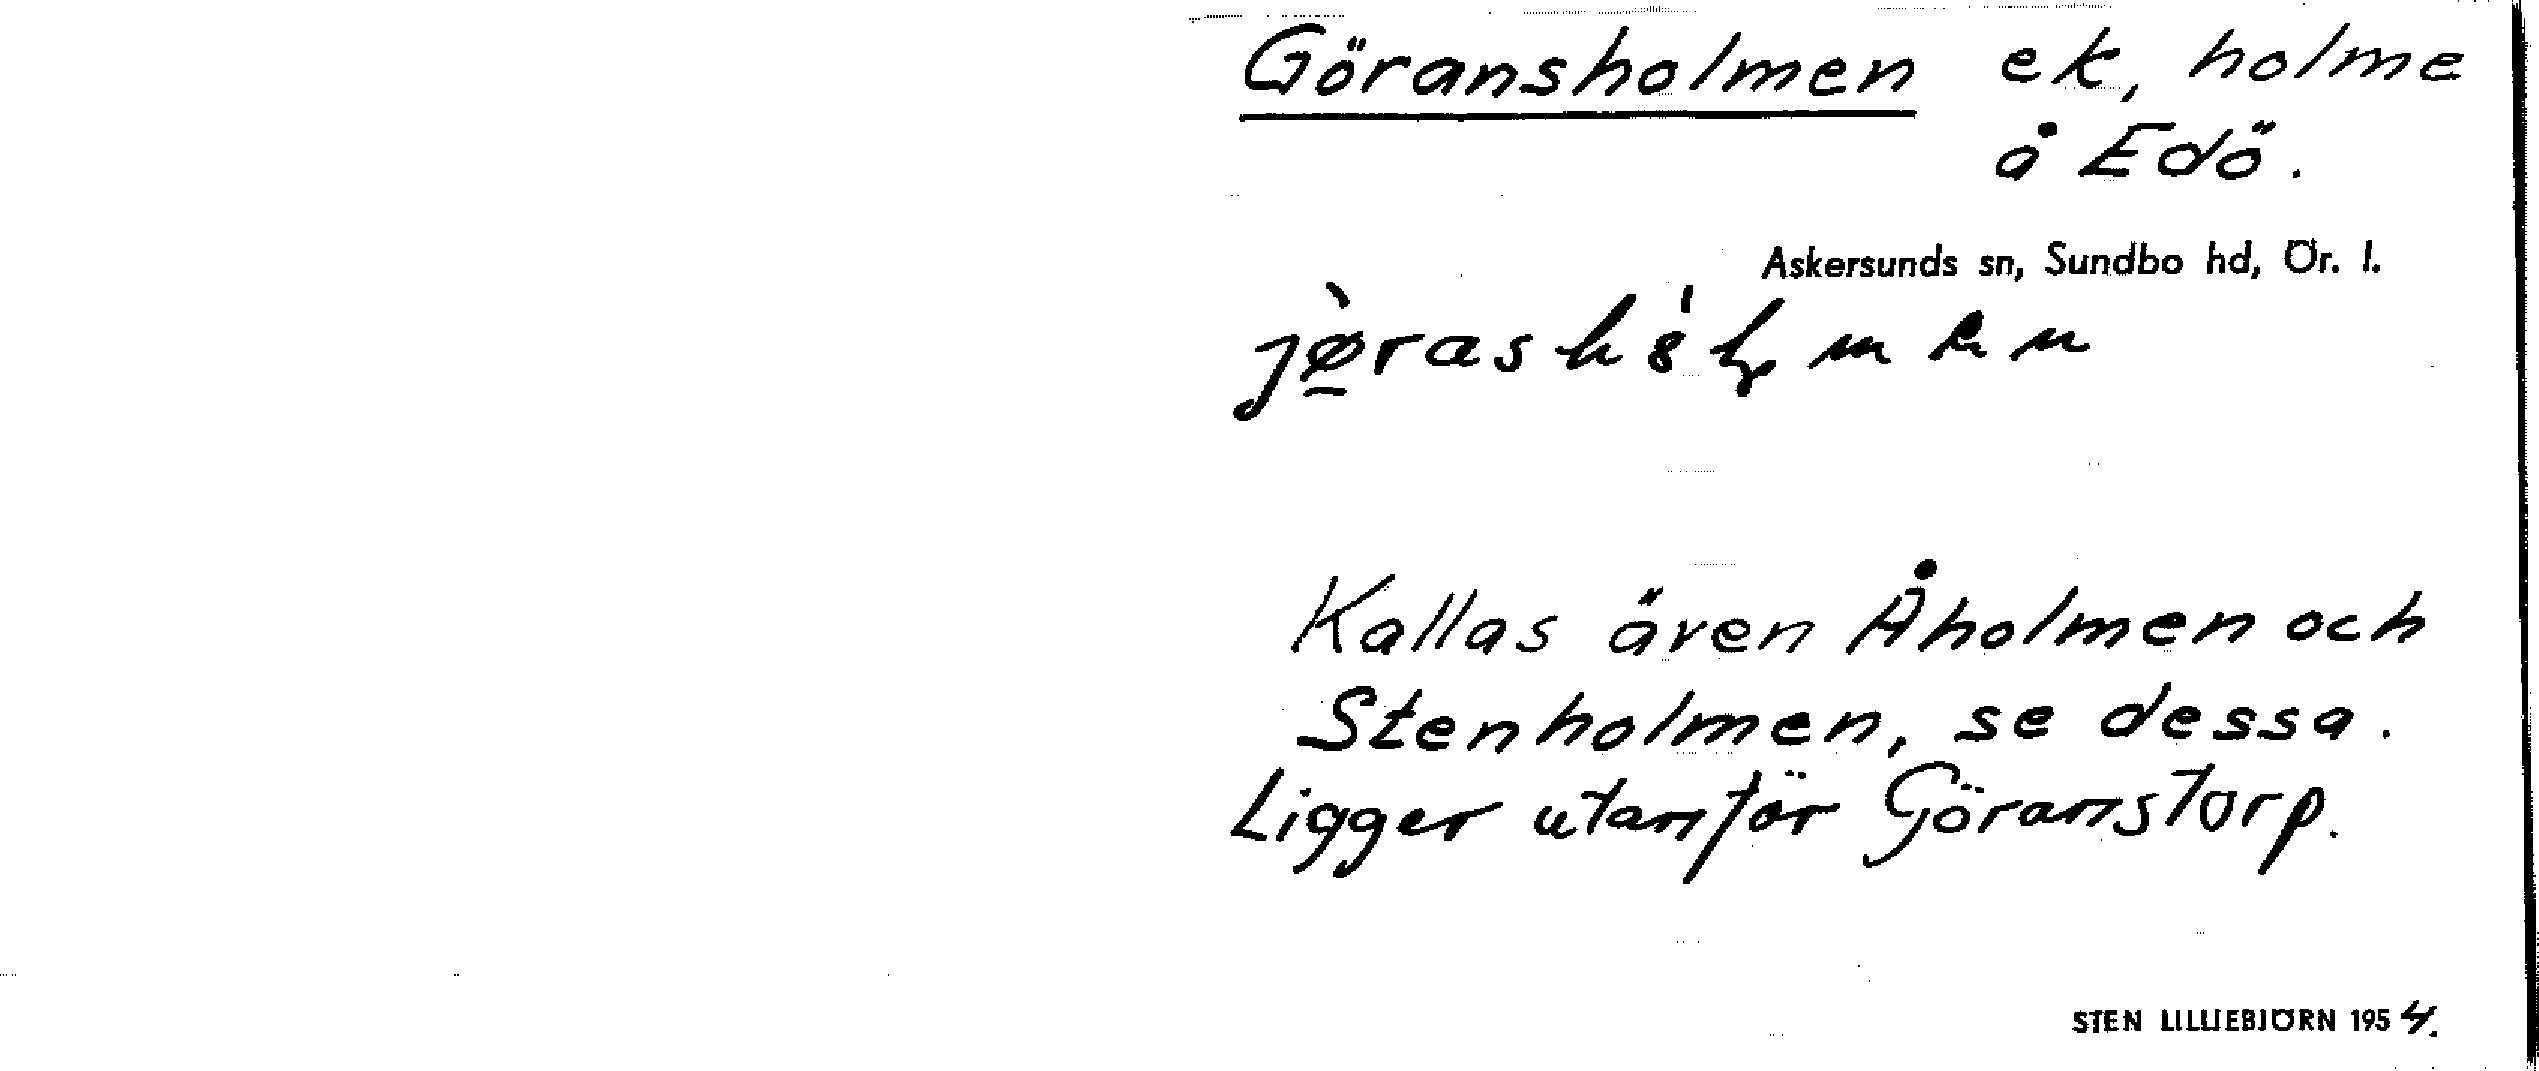 Göransholmen ek, holme
å Edö.
Askersunds sn, Sundbo hd, Ör. l.
Kallas även Åholmen och
Stenholmen, se dessa.
Ligger utanför Göranstorp.
STEN LILLIEBJÖRN 1954.